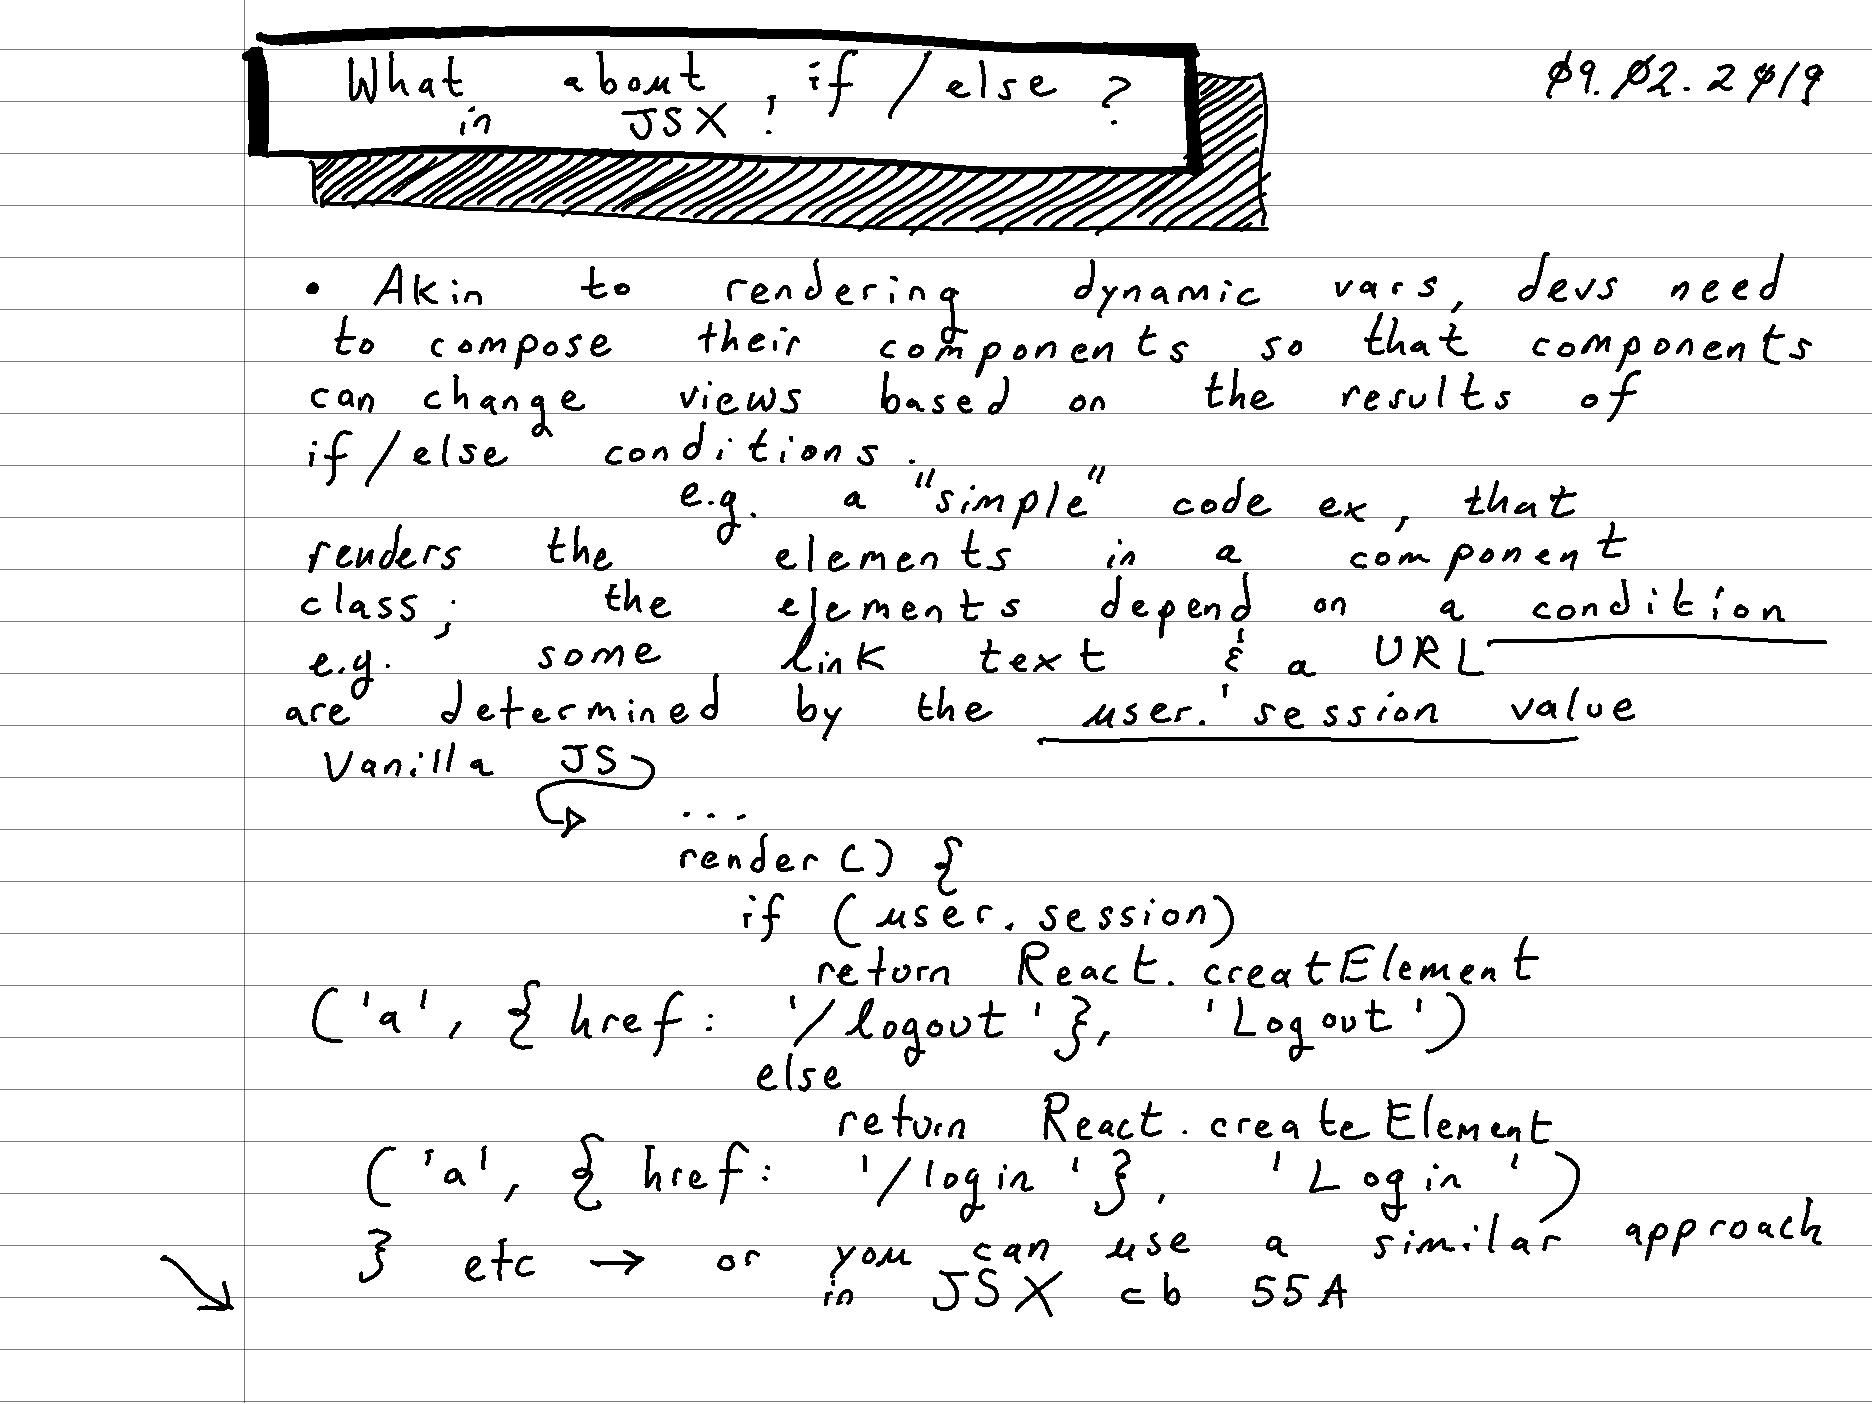 What about if / else ?
in JSX !
09.02.2019
• Akin to rendering dynamic vars, devs need
to compose their components so that components
can change views based on the results of
if/else conditions.
e.g. a "simple" code ex, that
renders the elements in a component
class; the elements depend on a condition
e.g. some link text & a URL
are determined by the user.'session value
Vanilla JS
...
render() {
if (user.session)
return React.creatElement
('a', { href: '/logout'}, 'Logout')
else
return React.createElement
('a', { href: '/login'}, 'Login')
} etc → or you can use a similar approach
in JSX cb 55A